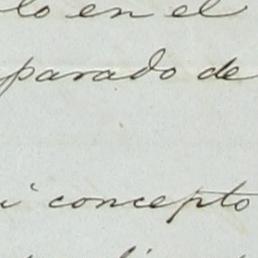 lo en el
parado de
i concepto